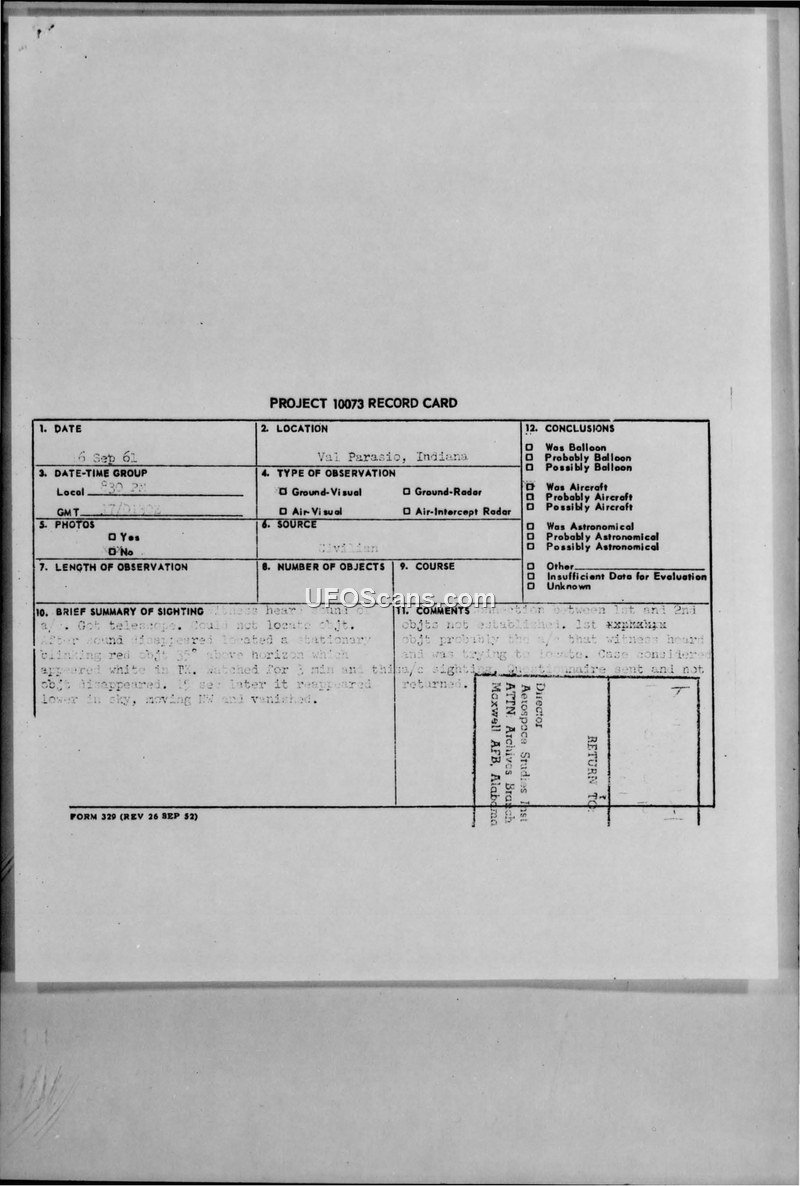 PROJECT 10073 RECORD CARD
1. DATE
6 Sep 61
2. LOCATION
Val Parasio, Indiana
3. DATE-TIME GROUP
Local
GMT
4. TYPE OF OBSERVATION
☐ Ground-Visual ☐ Ground-Radar
☐ Air-Visual ☐ Air-Intercept Radar
5. PHOTOS
☐ Yes
☐ No
6. SOURCE
Civilian
7. LENGTH OF OBSERVATION
8. NUMBER OF OBJECTS
9. COURSE
12. CONCLUSIONS
☐ Was Balloon
☐ Probably Balloon
☐ Possibly Balloon
☐ Was Aircraft
☐ Probably Aircraft
☐ Possibly Aircraft
☐ Was Astronomical
☐ Probably Astronomical
☐ Possibly Astronomical
☐ Other
☐ Insufficient Data for Evaluation
☐ Unknown
UFOScans.com
10. BRIEF SUMMARY OF SIGHTING heard sound of
a/c. Got telescope. Could not locate objt.
After sound disappeared located a stationary
blinking red objt 35° above horizon which
appeared white in watched for 3 min and
objt disappeared. 15 sec later it reappeared
lower in sky, moving NW and vanished.
11. COMMENTS Connection between 1st and 2nd
objts not established. 1st
objt probably the a/c that witness heard
and was trying to locate. Case considered
a/c sighting, questionnaire sent and not
returned.
RETURN TO:
Director
Aerospace Studies Inst
ATTN: Archives Branch
Maxwell AFB, Alabama
FORM 329 (REV 26 SEP 52)